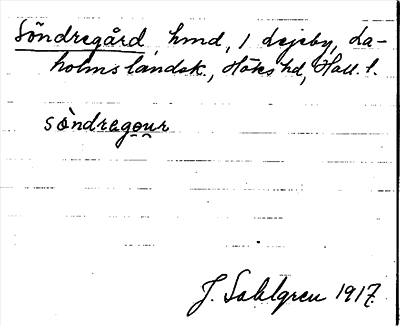 Söndregård, hmd, 1 Lejeby, La-
holms landsk., Höks hd, Hall. l.
sòndregou̯r
J. Sahlgren 1917.